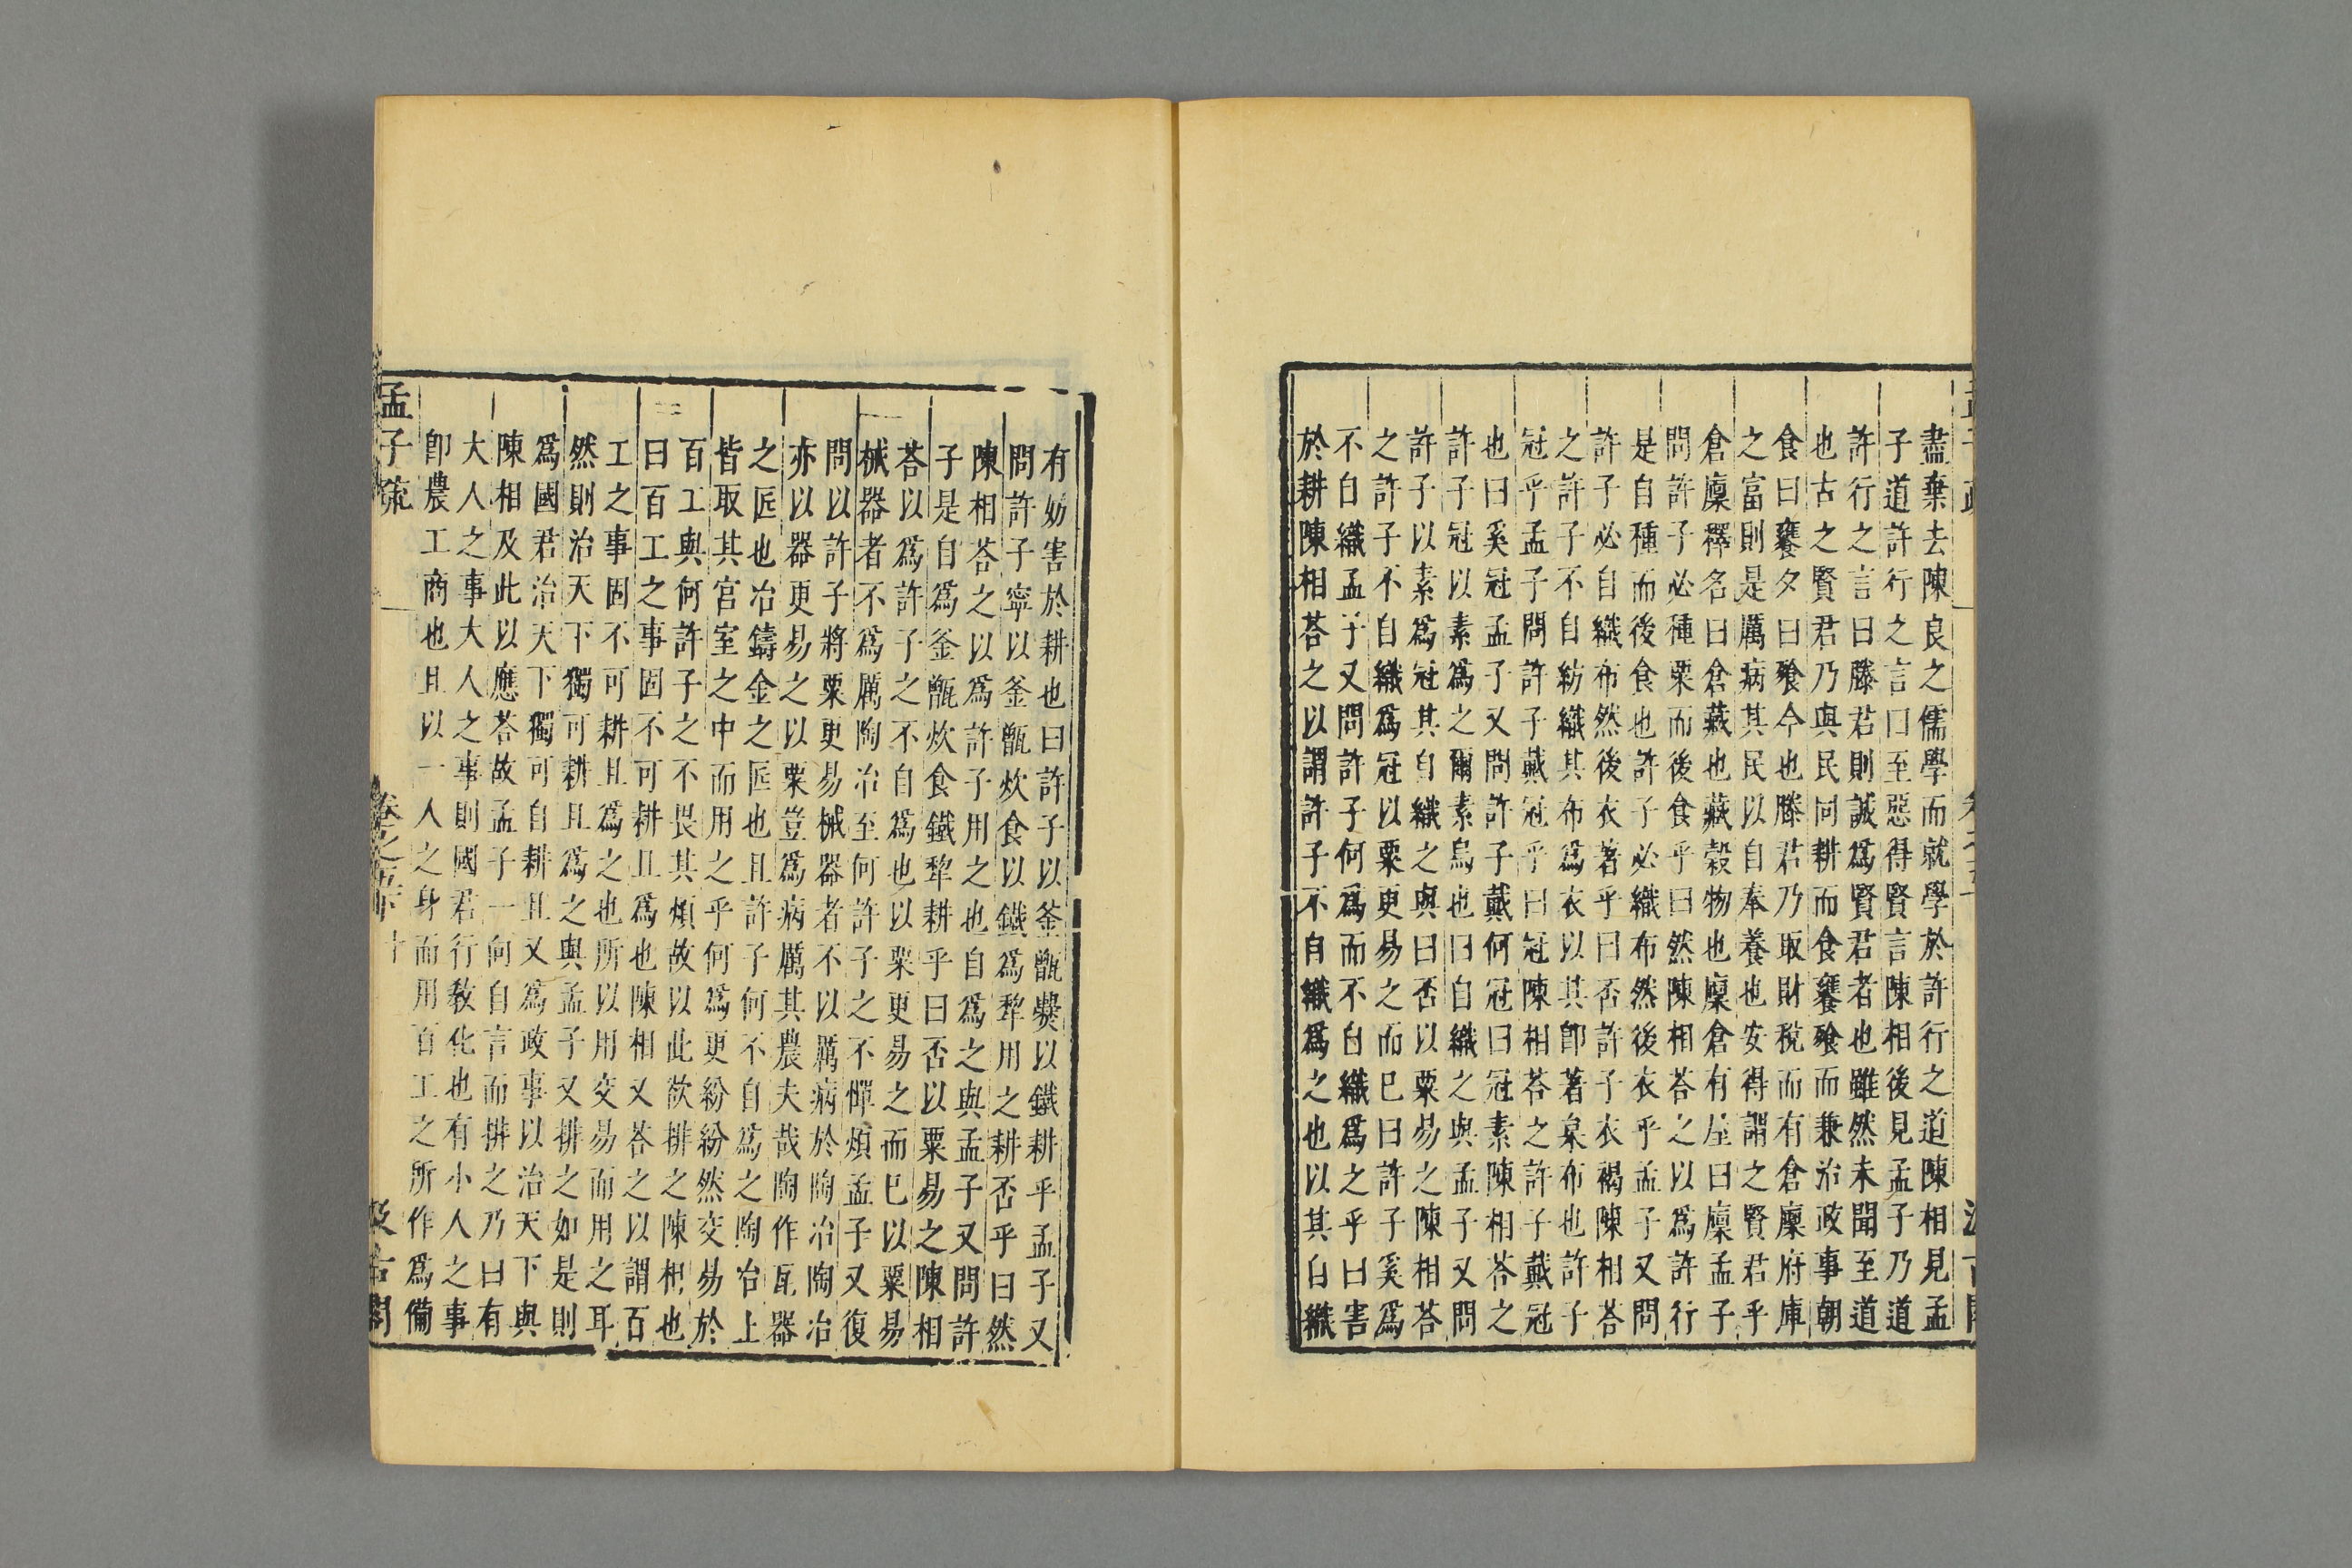 盡棄去陳良之儒學而就學於許行之道陳相見孟
子道許行之言曰至惡得賢言陳相後見孟子乃道
許行之言曰滕君則誠爲賢君者也雖然未聞至道
也古之賢君乃與民同耕而食饔飱而兼治政事朝
食曰饔夕曰飱今也滕君乃取財稅而有倉廩府庫
之富則是厲病其民以自奉養也安得謂之賢君乎
倉廩釋名曰倉藏也藏穀物也廩倉有屋曰廩孟子
問許子必種粟而後食乎曰然陳相荅之以爲許行
是自種而後食也許子必織布然後衣乎孟子又問
許子必自織布然後衣著乎曰否許子衣褐陳相荅
之許子不自紡織其布爲衣以其卽著枲布也許子
冠乎孟子問許子戴冠乎曰冠陳相荅之許子戴冠
也曰奚冠孟子又問許子戴何冠曰冠素陳相荅之
許子冠以素爲之爾素烏也曰自織之與孟子又問
許子以素爲冠其自織之與曰否以粟易之陳相荅
之許子不自織爲冠以粟更易之而巳曰許子奚爲
不自織孟子又問許子何爲而不自織爲之乎曰害
於耕陳相荅之以謂許子不自織爲之也以其自織
有妨害於耕也曰許子以釜甑㸑以鐵耕乎孟子又
問許子寧以釜甑炊食以鐵爲犂用之耕否乎曰然
陳相荅之以爲許子用之也自爲之與孟子又問許
子是自爲釜甑炊食鐵犂耕乎曰否以粟易之陳相
荅以爲許子之不自爲也以粟更易之而巳以粟易
械器者不爲厲陶冶至何許子之不憚煩孟子又復
問以許子將粟更易械器者不以厲病於陶冶陶冶
亦以器更易之以粟豈爲病厲其農夫哉陶作瓦器
之匠也冶鑄金之匠也且許子何不自爲之陶冶上
皆取其宮室之中而用之乎何爲更紛紛然交易於
百工與何許子之不畏其煩故以此欲排之陳相也
曰百工之事固不可耕且爲也陳相又荅之以謂百
工之事固不可耕且爲之也所以用交易而用之耳
然則治天下獨可耕且爲之與孟子又排之如是則
爲國君治天下獨可自耕且又爲政事以治天下與
陳相及此以應荅故孟子一向自言而排之乃曰有
大人之事大人之事則國君行敎化也有小人之事
卽農工商也且以一人之身而用百工之所作爲備
孟子疏
十